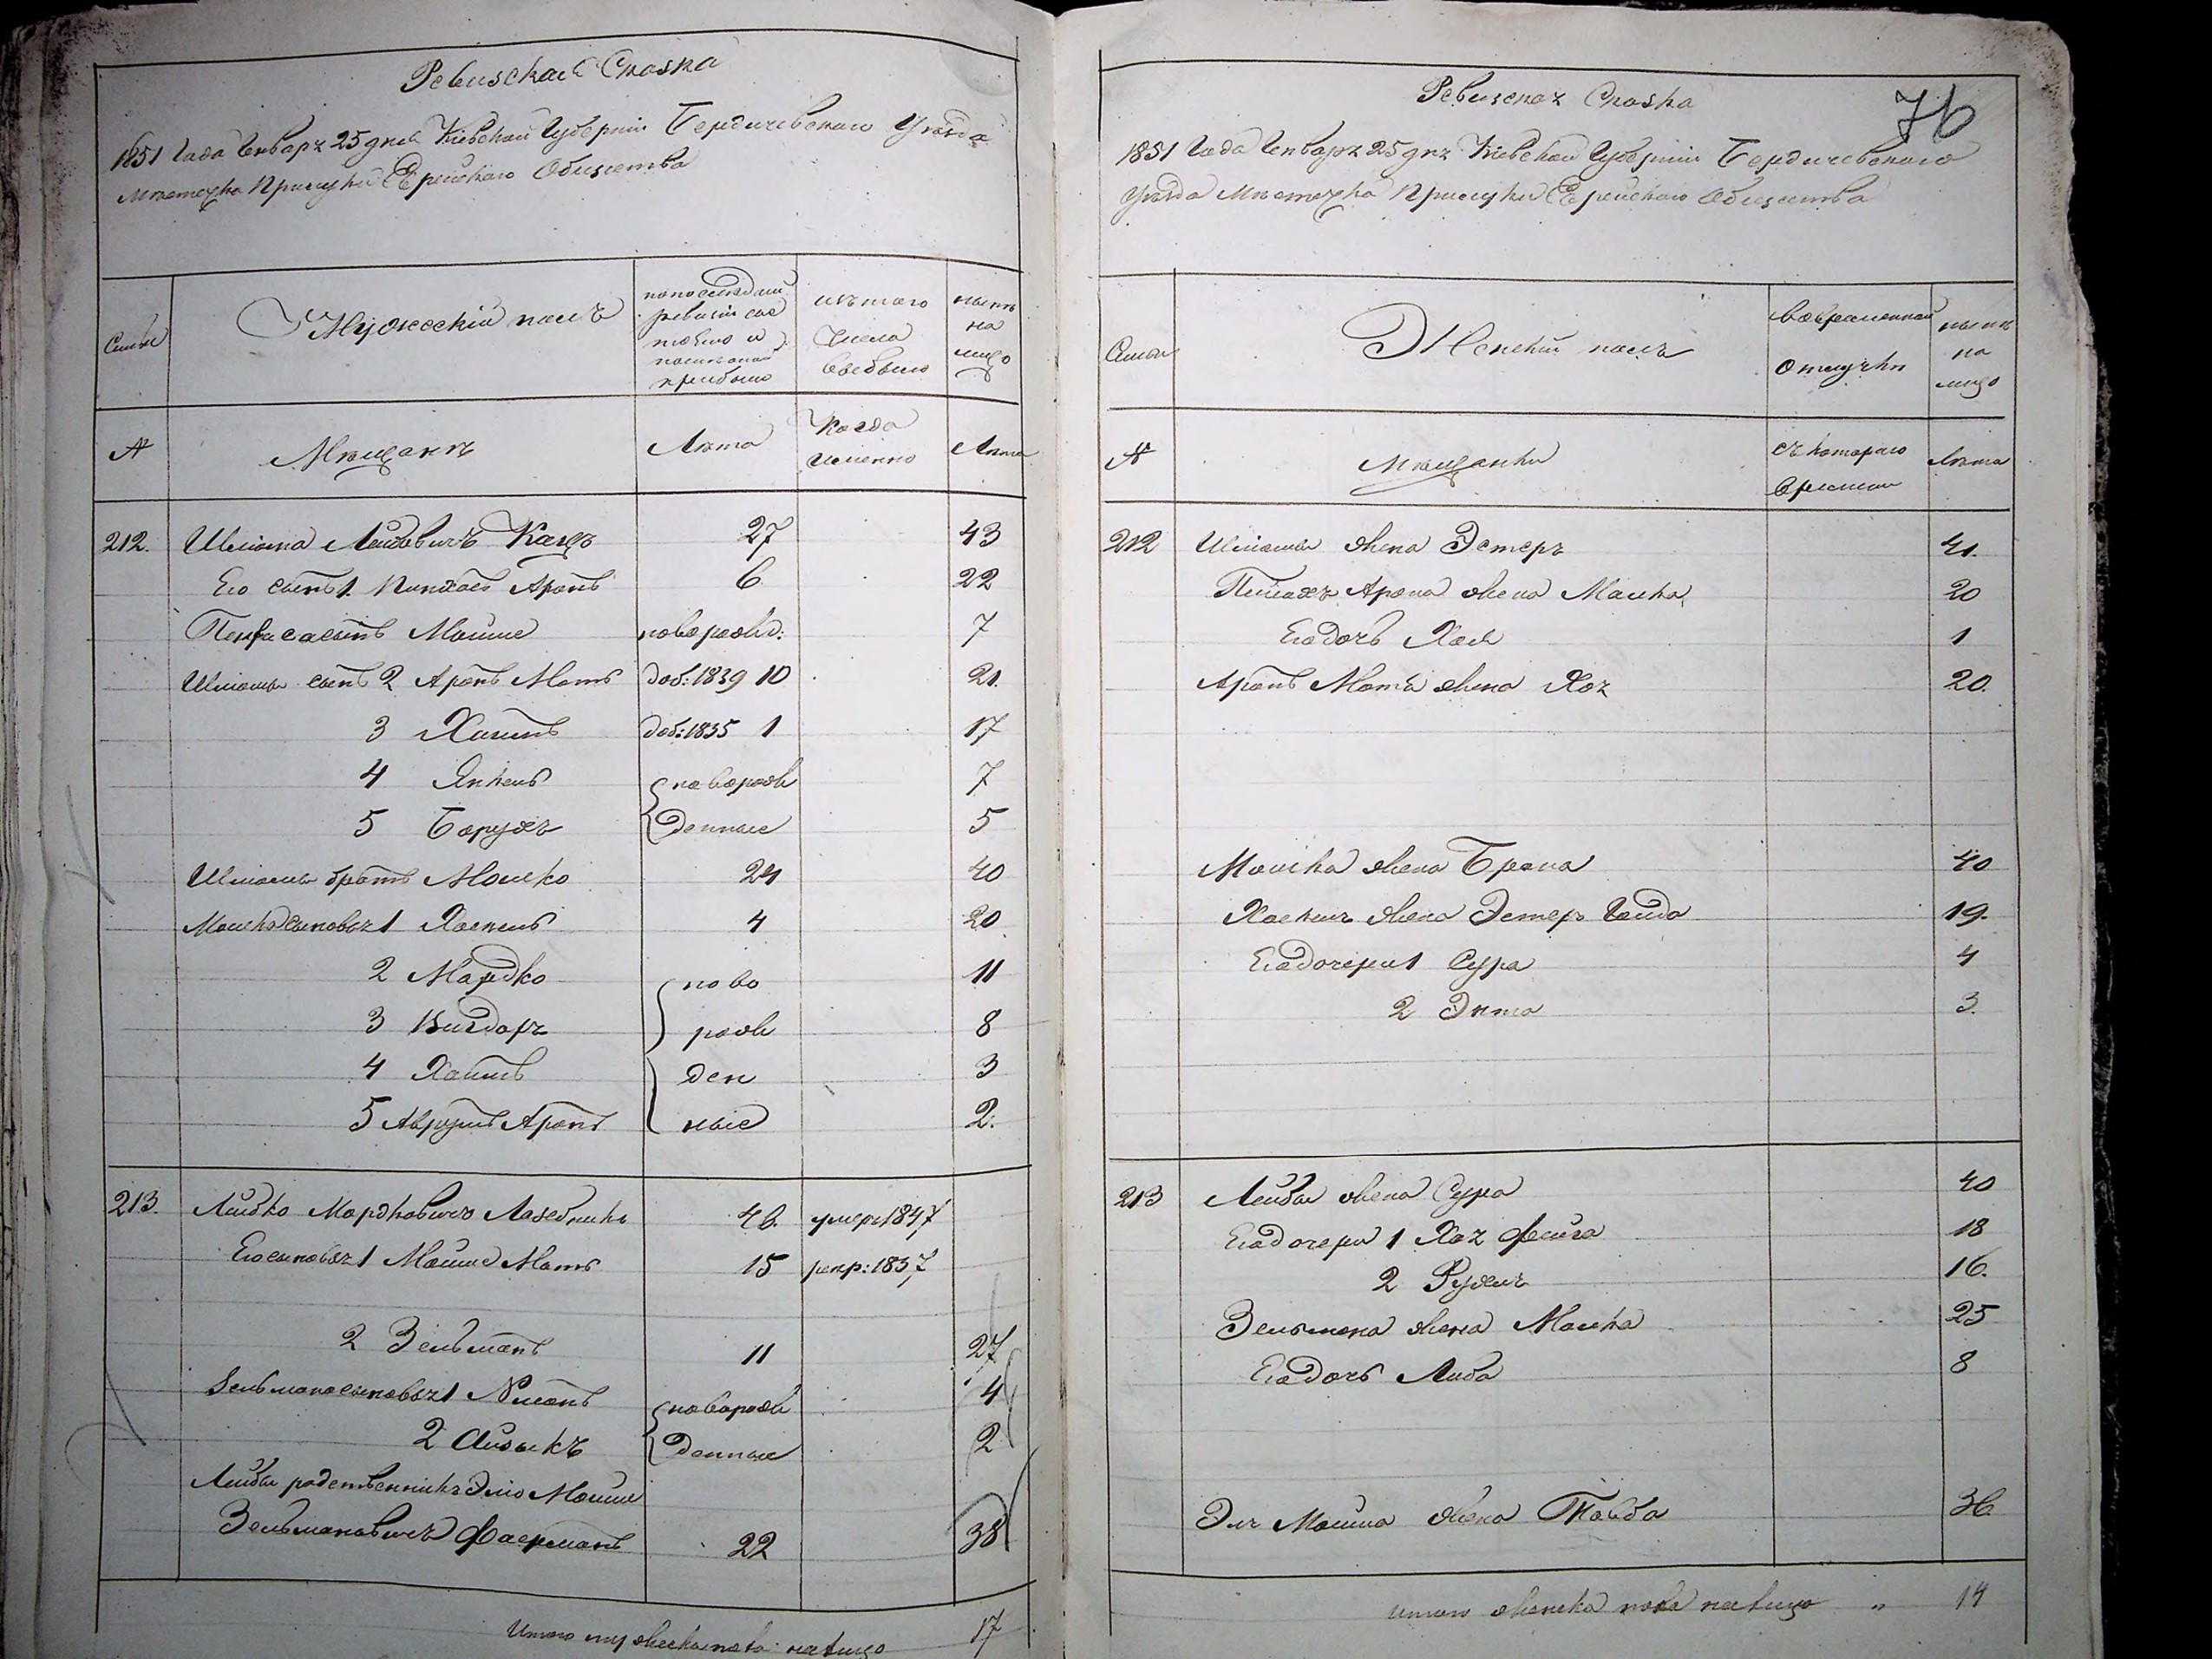 Ревизская Сказка
1851 Года Генваря 25 дня Киевской Губернии Бердичевского Уѣзда
Мѣстечка Прилуки Еврейского Общества
Семьи
Мужеский полъ
по последней
ревизии сос
тояло и
после оной
прибыло
изъ того
Числа
выбыло
нынѣ
на
лицо
№
Мѣщанѣ
Лѣта
Когда
именно
Лѣта
212. Шлиома Лейбовичъ Кацъ 27 43
Его сынъ 1. Пинхасъ Аронъ 6 22
Пинхаса сынъ Мойше новорожд: 7
Шлиомы сынъ 2 Аронъ Мотъ доб: 1839 10 21.
3 Хаимъ доб: 1835 1 17
4 Янкель новорож 7
5 Борухъ денные 5
Шлиомы братъ Мошко 24 40
Мошка сыновья 1 Хаскель 4 20
2 Мордко ново 11
3 Вигдоръ рож 8
4 Хаимъ ден 3
5 Аврумъ Аронъ ные 2.
213. Лейбко Мордковичъ Лазебникъ 46. умеръ 1847
Его сыновья 1 Мойше Мотъ 15 рекр: 1837
2 Зельманъ 11 27
Зельмана сыновья 1 4
новорож
2 Айзыкъ денные 2
Лейбы родственникъ Элио Мойше
Зельмановичъ Фаерманъ 22 38
Итого мужеска пола на лицо 17
76
Ревизская Сказка
1851 Года Генваря 25 дня Киевской Губернии Бердичевского
Уѣзда Мѣстечка Прилуки Еврейского Общества
Семьи
Женский полъ
Во временной
отлучки
нынѣ
на
лицо
№
Мѣщанки
съ котораго
времени
Лѣта
212 Шлиомы жена Эстеръ 41.
Пинхаса Арона жена Малка 20
Ея дочь Хая 1
Аронъ Мотя жена Хая 20.
Мошка жена Брана 40
Хаскеля жена Эстеръ Голда 19.
Ея дочери 1 Сура 4
2 Энта 3.
213 Лейбы жена Сура 40
Ея дочери 1 Хая Фейга 18
2 Рухля 16.
Зельмана жена Малка 25
Ея дочь Либа 8
Эля Мойша жена Товба 36
Итого женска пола на лицо " 14